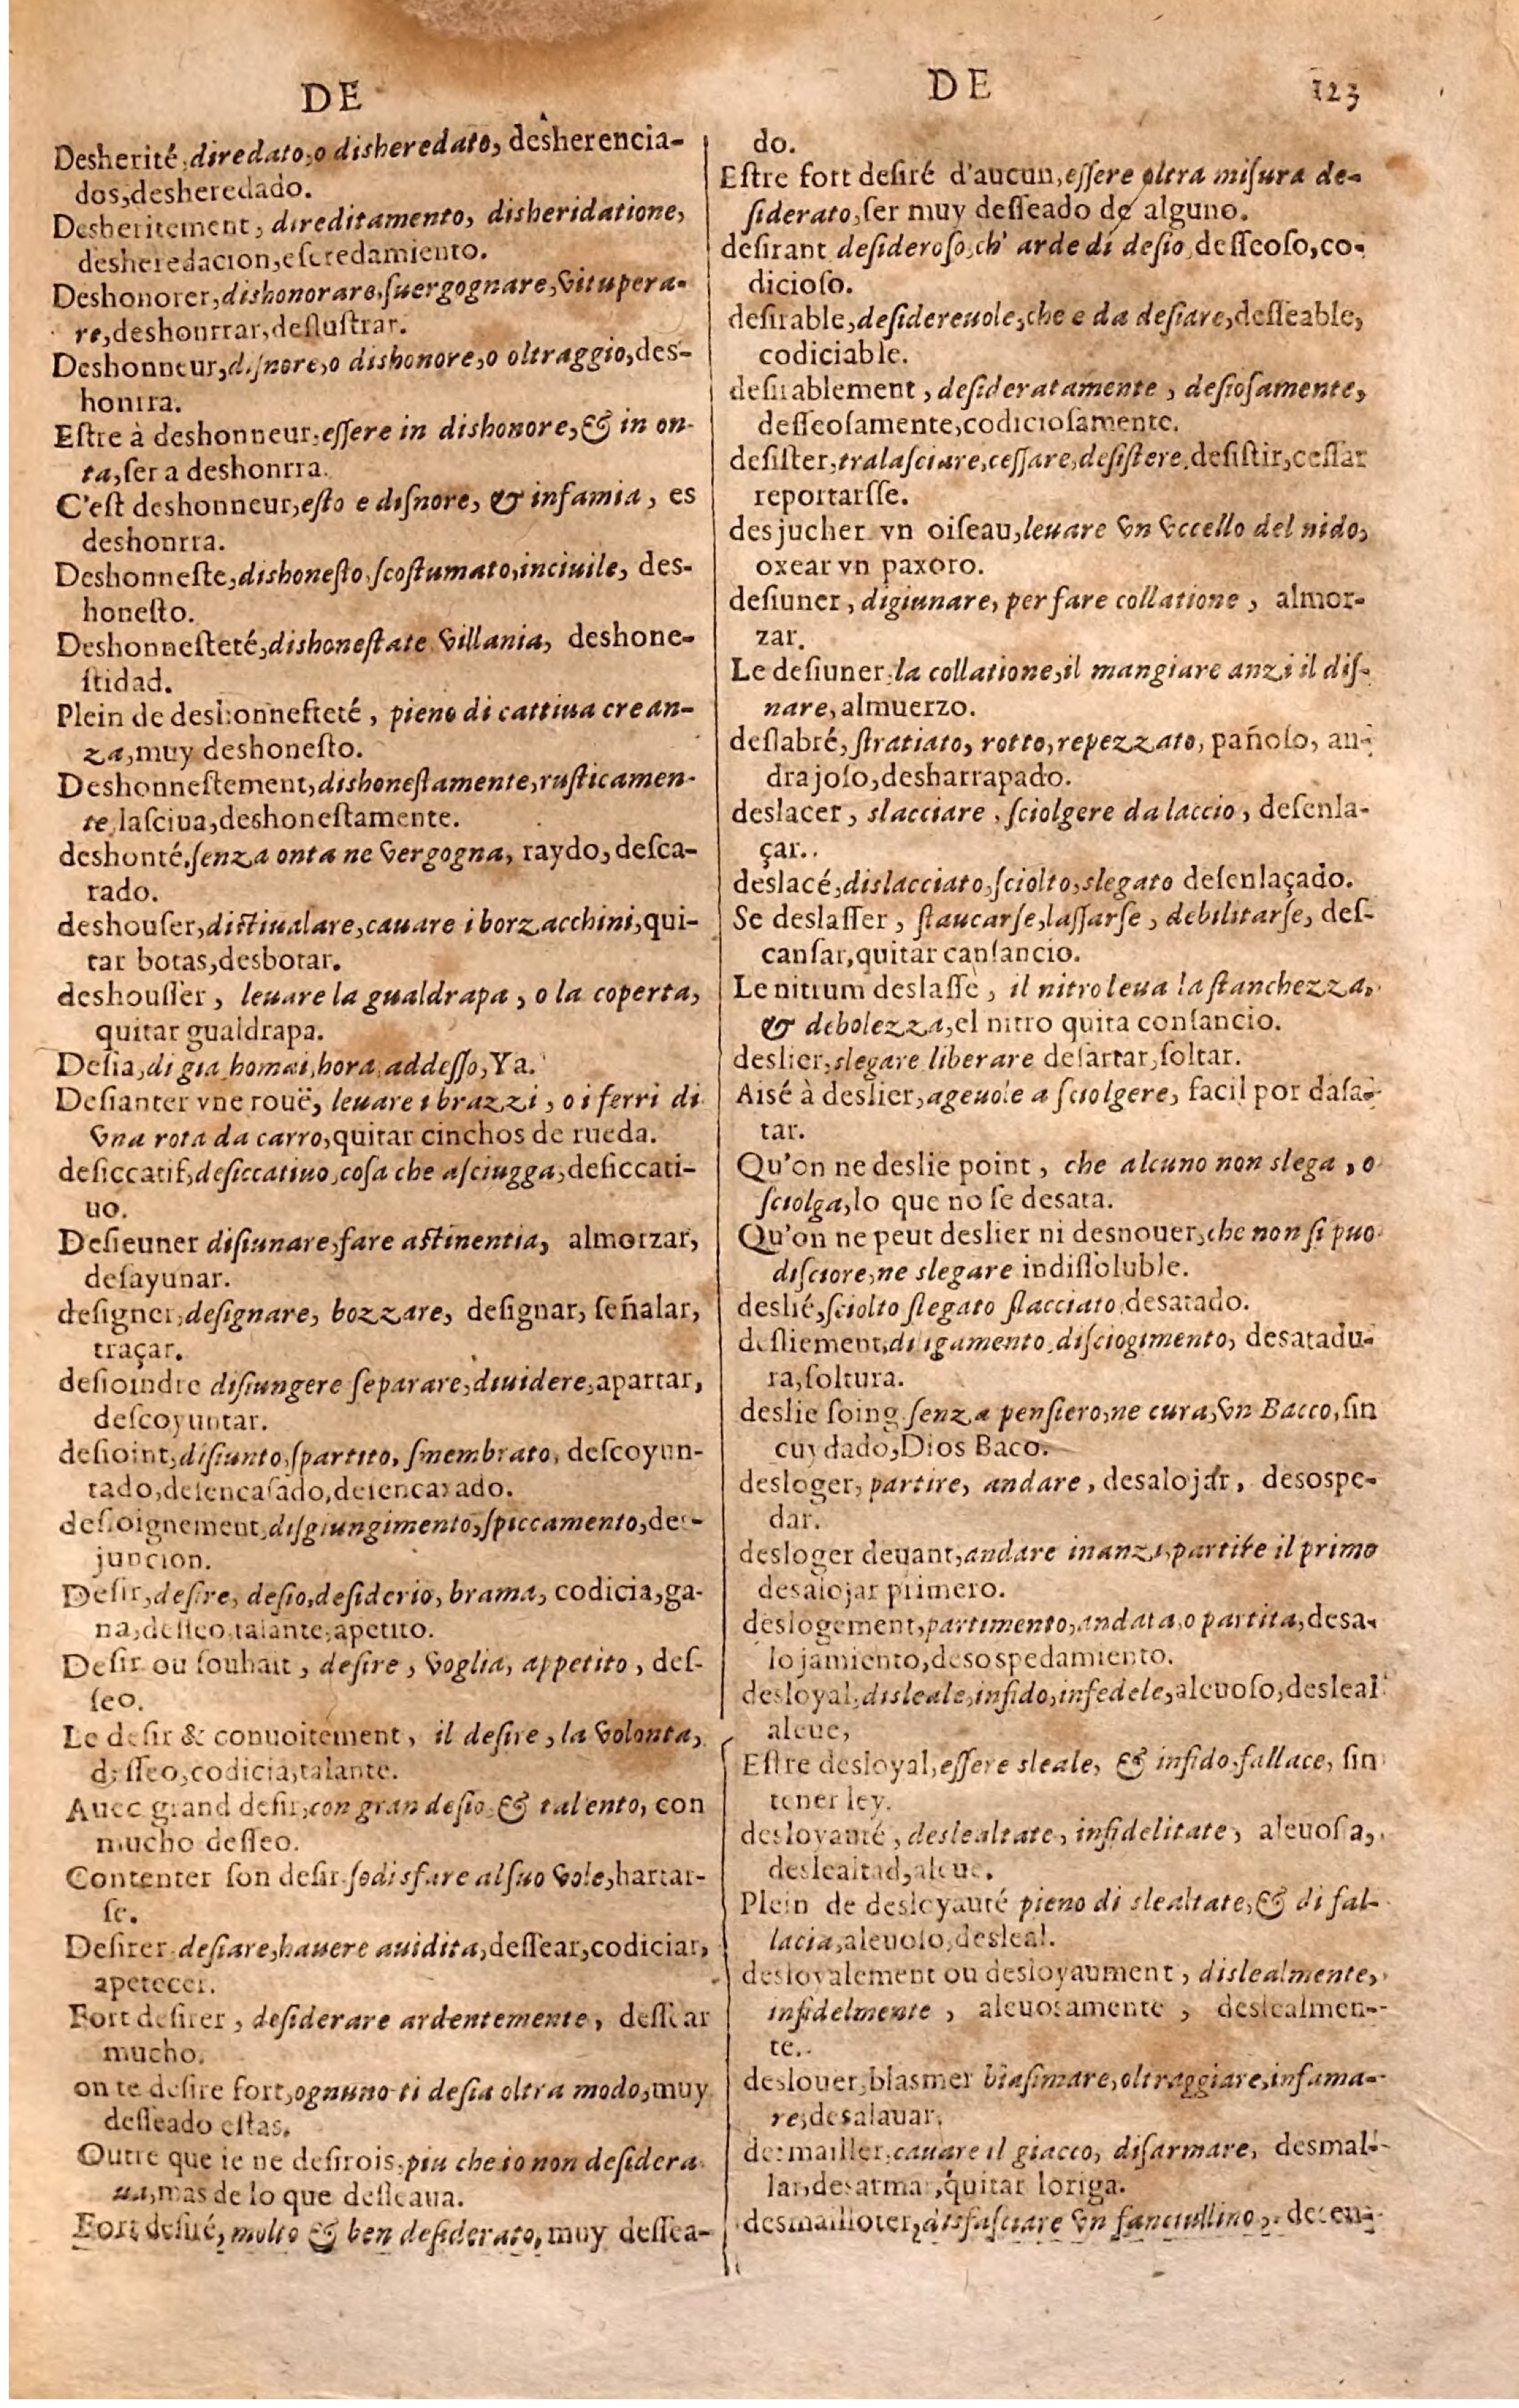 DE
Desherité, diredato, o disheredato, desherencia-
dos, desheredado.
Desheritement, direditamento, disheridatione,
desheredacion, eseredamiento.
Deshonorer, dishonorare, suergognare, vitupera-
re, deshonrrar, deslustrar.
Deshonneur, disnore, o dishonore, o oltraggio, des-
honrra.
Estre à deshonneur, essere in dishonore, & in on-
ta, ser a deshonrra.
C'est deshonneur, esto e disnore, & infamia, es
deshonrra.
Deshonneste, dishonesto, scostumato, inciuile, des-
honesto.
Deshonnesteté, dishonestate villania, deshone-
stidad.
Plein de deshonnesteté, pieno di cattiua crean-
za, muy deshonesto.
Deshonnestement, dishonestamente, rusticamen-
te, lasciua, deshonestamente.
deshonté, senza onta ne vergogna, raydo, desca-
rado.
deshouser, distiualare, cauare i borzacchini, qui-
tar botas, desbotar.
deshousser, leuare la gualdrapa, o la coperta,
quitar gualdrapa.
Desia, di gia homai, hora, addesso, Ya.
Desianter vne rouë, leuare i brazzi, o i ferri di
vna rota da carro, quitar cinchos de rueda.
desiccatif, desiccatiuo, cosa che asciugga, desiccati-
uo.
Desieuner disiunare, fare astinentia, almorzar,
desayunar.
designer, designare, bozzare, designar, señalar,
traçar.
desioindre disiungere separare, diuidere, apartar,
descoyuntar.
desioint, disiunto, spartito, smembrato, descoyun-
tado, desencasado, desencaxado.
desioignement, disgiungimento, spiccamento, des-
juncion.
Desir, desire, desio, desiderio, brama, codicia, ga-
na, desseo, talante, apetito.
Desir ou souhait, desire, voglia, appetito, des-
seo.
Le desir & conuoitement, il desire, la volonta,
desseo, codicia, talante.
Auec grand desir, con gran desio, & talento, con
mucho desseo.
Contenter son desir sodisfare al suo vole, hartar-
se.
Desirer, desiare, hauere auidita, dessear, codiciar,
apetecer.
Fort desirer, desiderare ardentemente, dessear
mucho.
on te desire fort, ognuno ti desia oltra modo, muy
desseado estas.
Outre que ie ne desirois, piu che io non desidera
ua, mas de lo que desseaua.
Fort desiré, molto & ben desiderato, muy dessea-
DE 123
do.
Estre fort desiré d'aucun, essere oltra misura de-
siderato, ser muy desseado de alguno.
desirant desideroso, ch' arde di desio, desseoso, co-
dicioso.
desirable, desidereuole, che e da desiare, desseable,
codiciable.
desirablement, desideratamente, desiosamente,
desseosamente, codiciosamente.
desister, tralasciare, cessare, desistere, desistir, cessar
reportarsse.
desjucher vn oiseau, leuare vn vccello del nido,
oxear vn paxoro.
desiuner, digiunare, per fare collatione, almor-
zar.
Le desiuner, la collatione, il mangiare anzi il dis-
nare, almuerzo.
deslabré, stratiato, rotto, repezzato, pañoso, an-
drajoso, desharrapado.
deslacer, slacciare, sciolgere da laccio, desenla-
çar.
deslacé, dislacciato, sciolto, slegato desenlaçado.
Se deslasser, staucarse, lassarse, debilitarse, des-
cansar, quitar cansancio.
Le nitrum deslasse, il nitro leua la stanchezza,
& debolezza, el nitro quita consancio.
deslier, slegare liberare desartar, soltar.
Aisé à deslier, ageuole a sciolgere, facil por dasa-
tar.
Qu'on ne deslie point, che alcuno non slega, o
sciolga, lo que no se desata.
Qu'on ne peut deslier ni desnouer, che non si puo
disciore, ne slegare indissoluble.
deslié, sciolto slegato slacciato, desatado.
desliement, disligamento, disciogimento, desatadu-
ra, soltura.
deslie soing senza pensiero, ne cura, vn Bacco, sin
cuydado, Dios Baco.
desloger, partire, andare, desalojar, desospe-
dar.
desloger deuant, andare inanzi, partire il primo
desalojar primero.
deslogement, partimento, andata, o partita, desa-
lojamiento, desospedamiento.
desloyal, disleale, infido, infedele, aleuoso, desleal
aleue,
Estre desloyal, essere sleale, & infido, fallace, sin
tener ley.
desloyauté, deslealtate, infidelitate, aleuosia,
deslealtad, aleue.
Plein de desloyauté pieno di slealtate, & di fal-
lacia, aleuoso, desleal.
desloyalement ou desloyaument, dislealmente,
infidelmente, aleuosamente, deslealmen-
te.
deslouer, blasmer biasimare, oltraggiare, infama-
re, desalauar.
desmailler, cauare il giacco, disarmare, desmal-
lar, desarmar, quitar loriga.
desmailloter, disfasciare vn fanciullino, desen-